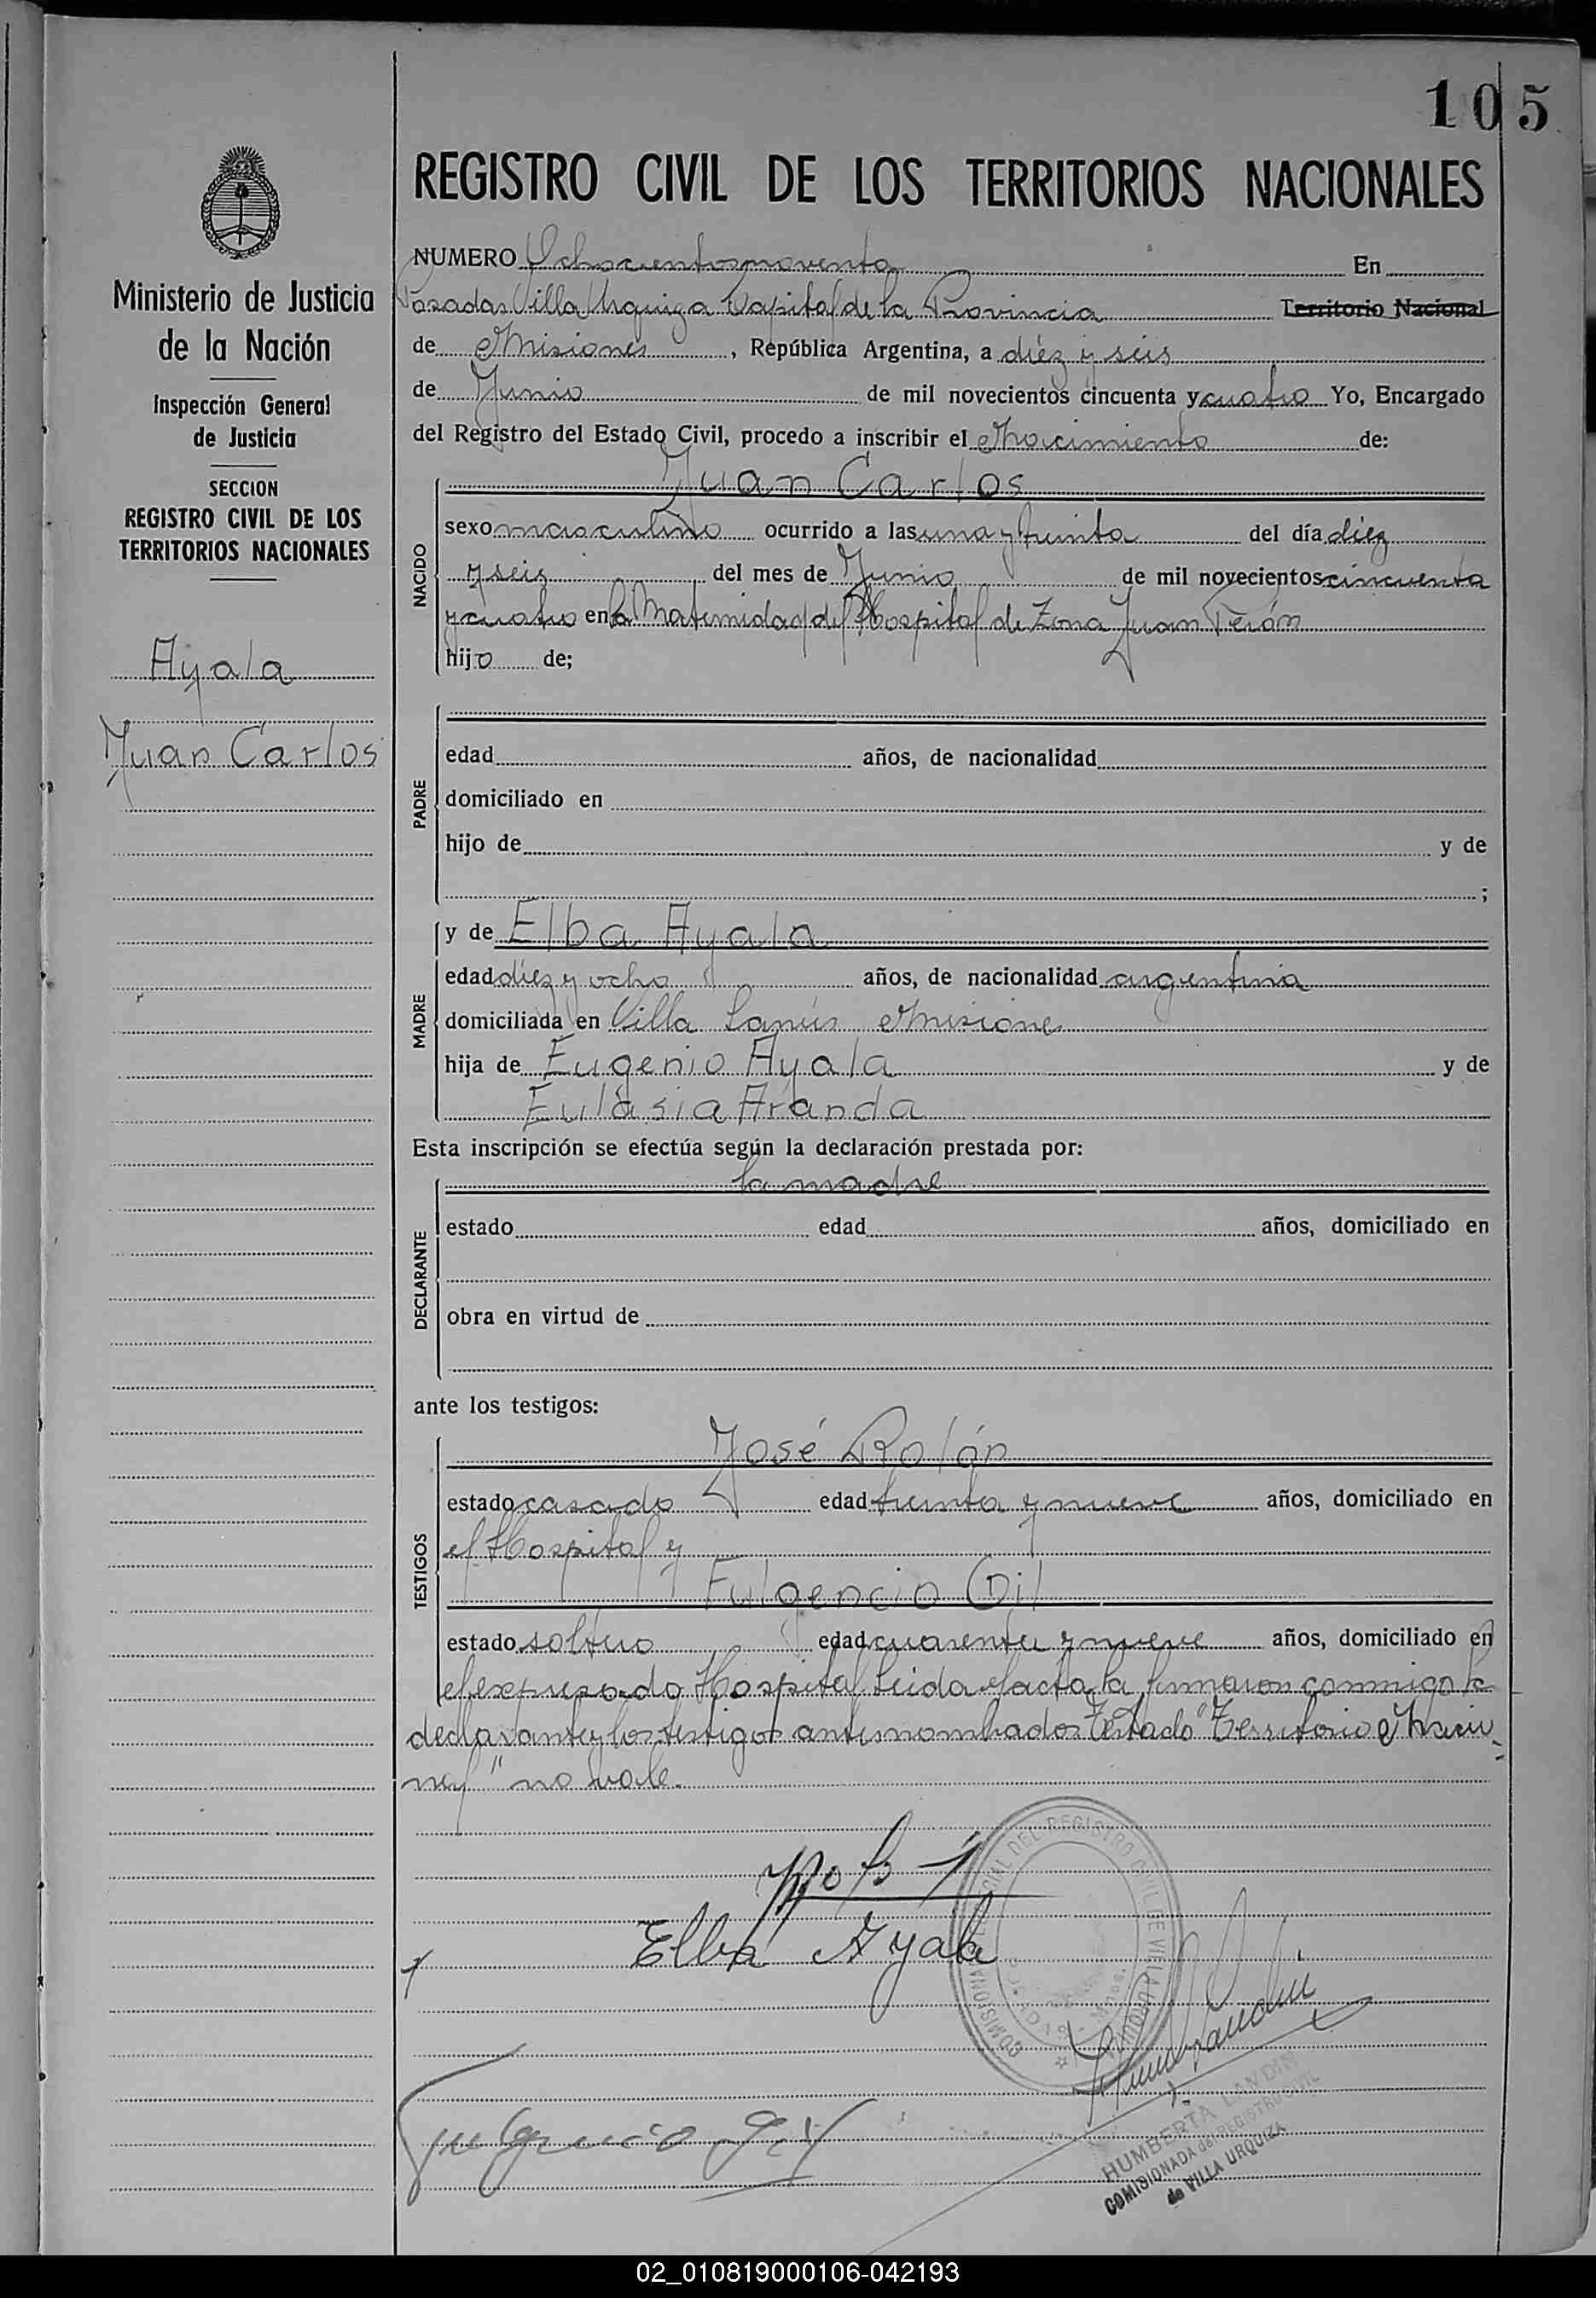 105
REGISTRO CIVIL DE LOS TERRITORIOS NACIONALES
Ministerio de Justicia
de la Nación
Inspección General
de Justicia
SECCION
REGISTRO CIVIL DE LOS
TERRITORIOS NACIONALES
Ayala
Juan Carlos
NUMERO Ochocientos noventa En
Posadas Villa Urquiza Capital de la Provincia Territorio Nacional
de Misiones, República Argentina, a diéz y seis
de Junio de mil novecientos cincuenta y cuatro Yo, Encargado
del Registro del Estado Civil, procedo a inscribir el Nacimiento de:
NACIDO
Juan Carlos
sexo masculino ocurrido a las una y treinta del día diéz
y seis del mes de Junio de mil novecientos cincuenta
y cuatro en la Maternidad del Hospital de Zona Juan Perón
hijo de;
PADRE
edad años, de nacionalidad
domiciliado en
hijo de y de
;
MADRE
y de Elba Ayala
edad diéz y ocho años, de nacionalidad argentina
domiciliada en Villa Lanús Misiones
hija de Eugenio Ayala y de
Eulasia Aranda
Esta inscripción se efectúa según la declaración prestada por:
DECLARANTE
la madre
estado edad años, domiciliado en
obra en virtud de
ante los testigos:
TESTIGOS
José Rolón
estado casado edad treinta y nueve años, domiciliado en
el Hospital y
Fulgencio Gil
estado soltero edad cuarenta y nueve años, domiciliado en
el expresado Hospital Leida el acta la firmaron conmigo la
declarante y los testigos antes nombrados Testado "Territorio Nacio
nal" no vale.
Elba Ayala
COMISIONADA DEL REGISTRO CIVIL DE VILLA URQUIZA
POSADAS - Mnes.
Fulgencio Gil
HUMBERTA LANDIN
COMISIONADA del REGISTRO CIVIL
de VILLA URQUIZA
02_010819000106-042193